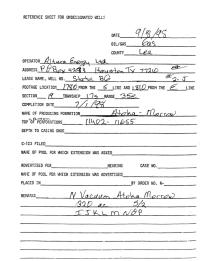 REFERENCE SHEET FOR UNDESIGNATED WELLS
DATE 9/8/95
OIL/GAS Gas
COUNTY Lea
OPERATOR Altura Energy Ltd
ADDRESS P.O. Box 4294 Houston Tx 77210
LEASE NAME, WELL NO. State
FOOTAGE LOCATION 1780 FROM THE S LINE AND 1810 FROM THE E LINE
SECTION TOWNSHIP 17s RANGE 35e
COMPLETION DATE 7/1/95
NAME OF PRODUCING FORMATION Atoka - Morrow
TOP OF PERFORATIONS 11402 - 11655
DEPTH TO CASING SHOE
C-123 FILED
NAME OF POOL FOR WHICH EXTENSION WAS ASKED
ADVERTISED FOR HEARING CASE NO.
NAME OF POOL FOR WHICH EXTENSION WAS ADVERTISED
PLACED IN BY ORDER NO. R-
REMARKS N Vacuum Atoka Morrow
320 ac S/2
I J K L M N O P